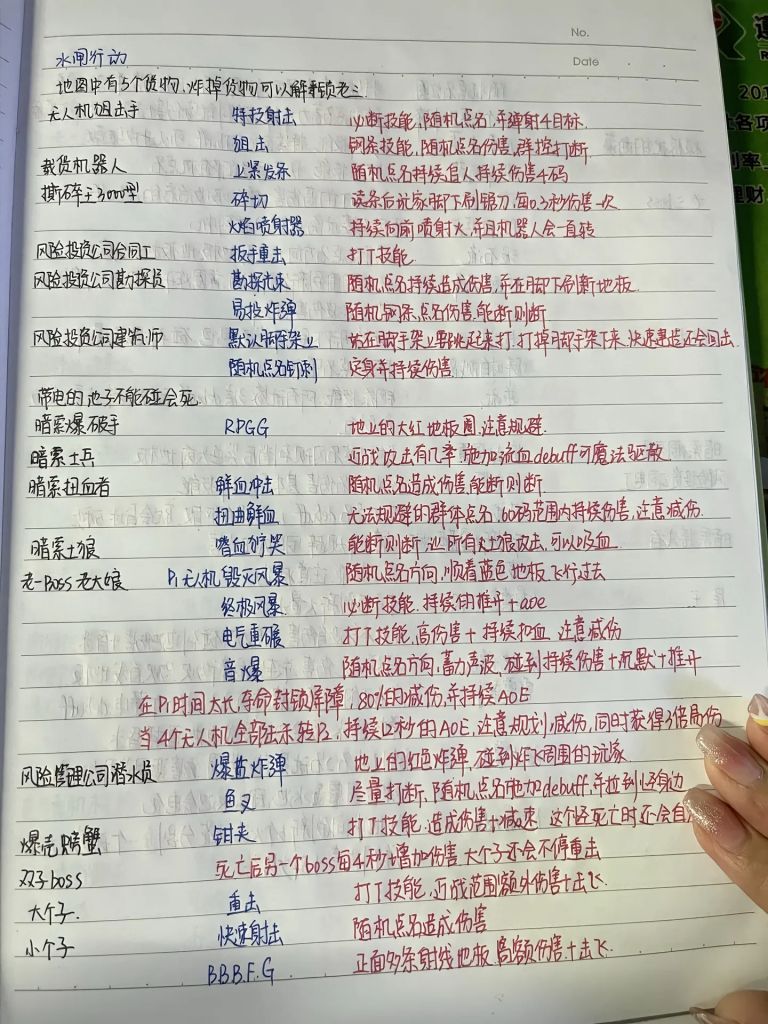 No.
Date
水闸行动
地图中有5个货物,炸掉货物可以解锁老三
无人机狙击手 特技射击 必断技能,随机点名,弹射4目标.
狙击 网条技能,随机点名伤害,群控打断.
载货机器人 上紧发条 随机点名持续追人持续伤害4码
撕碎王3000型 碎切 读条后玩家脚下刷锯刀,每0.3秒伤害一次
火焰喷射器 持续向前喷射火,并且机器人会一直转
风险投资公司合同工 扳手重击 打T技能.
风险投资公司勘探员 勘探光束 随机点名持续造成伤害,并在脚下刷新地板
易投炸弹 随机网条,点名伤害,能断则断
风险投资公司建筑师 默认脚手架 站在脚手架上要跳起来打,打掉脚手架下来,快速建造还会回去
随机点名钉刺 定身并持续伤害.
带电的池子不能碰会死
暗索爆破手 RPGG 地上的大红地板圈注意规避.
暗索士兵 近战攻击有几率.施加流血debuff可魔法驱散
暗索扭血者 鲜血冲击 随机点名造成伤害,能断则断
扭曲鲜血 无法规避的群体点名,60码范围内持续伤害,注意减伤.
暗索土狼 嗜血狞笑 能断则断,让所有土狼攻击,可以吸血
老一Boss 老大娘 P1无人机 毁灭风暴 随机点名方向,顺着蓝色地板飞行过去
终极风暴 必断技能.持续的推开+aoe
电气重碾 打T技能,高伤害+持续扣血,注意减伤
音爆 随机点名方向,蓄力声波,碰到持续伤害+沉默+推开
在P1时间太长,夺命封锁屏障,80%的减伤,并持续AOE
当4个无人机全部击杀转P2,持续12秒的AOE,注意规划减伤,同时获得3倍易伤
风险管理公司潜水员 爆盐炸弹 地上的红色炸弹,碰到炸飞周围的玩家
鱼叉 尽量打断,随机点名施加debuff,并拉到怪身边
爆壳螃蟹 钳夹 打T技能,造成伤害+减速 这个怪死亡时还会自
双子boss 死亡后另一个boss每4秒+增加伤害 大个子还会不停重击
大个子. 重击 打T技能,近战范围额外伤害+击飞.
小个子 快速射击 随机点名造成伤害
B.B.B.F.G 正面多条射线地板,高额伤害+击飞.